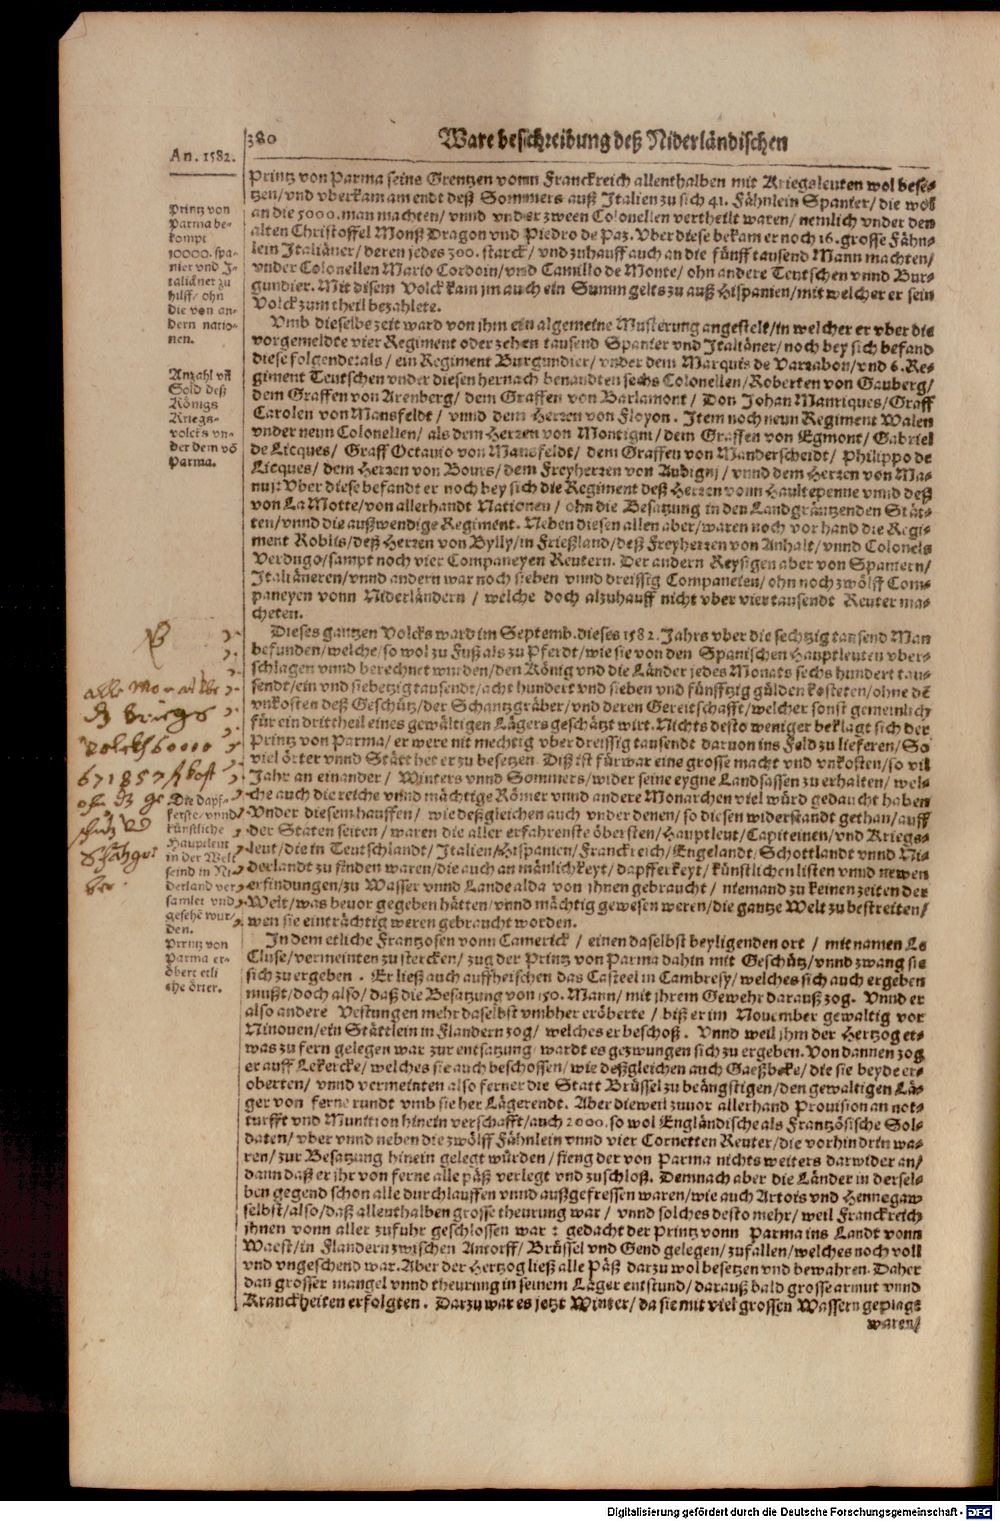 380
Ware beschreibung deß Niderländischen
An. 1582.
Printz von
Parma be-
kompt
10000. spa-
nier vnd J-
taliäner zu
hilff / ohn
die von an-
dern natio-
nen.
Anzahl vñ
Sold deß
Königs
Kriegs-
volcks vn-
der dem vō
Parma.
Printz von Parma seine Grentzen vonn Franckreich allenthalben mit Kriegsleuten wol bese-
tzen / vnd vberkam am endt deß Sommers auß Jtalien zu sich 41. Fähnlein Spanier / die wol
an die 5000. man machten / vnnd vnder zween Colonellen vertheilt waren / nemlich vnder den
alten Christoffel Mons Dragon vnd Piedro de Paz. Vber diese bekam er noch 16. grosse Fähn-
lein Jtaliäner / deren jedes 300. starck / vnd zuhauff auch an die fünff tausend Mann machten /
vnder Colonellen Mario Cordoin / vnd Camillo de Monte / ohn andere Teutschen vnnd Bur-
gundier. Mit disem Volck kam jm auch ein Summ gelts zu auß Hispanien / mit welcher er sein
Volck zum theil bezahlete.
Vmb dieselbe zeit ward von jhm ein algemeine Musterung angestelt / in welcher er vber die
vorgemeldte vier Regiment oder zehen tausend Spanier vnd Jtaliäner / noch bey sich befand
diese folgende: als / ein Regiment Burgundier / vnder dem Marquis de Varrabon / vnd 6. Re-
giment Teutschen vnder diesen hernach benandten sechs Colonellen / Roberten von Gauberg /
dem Graffen von Arenberg / dem Graffen von Barlamont / Don Johan Manriques / Graff
Carolen von Mansfeldt / vnnd dem Herren von Floyon. Jtem noch neun Regiment Walen
vnder neun Colonellen / als dem Herren von Montigni / dem Graffen von Egmont / Gabriel
de Licques / Graff Octauio von Mansfeldt / dem Graffen von Manderscheidt / Philippo de
Licques / dem Herren von Bours / dem Freyherren von Aubigni / vnnd dem Herren von Ma-
nuj: Vber diese befandt er noch bey sich die Regiment deß Herren vonn Haultepenne vnnd deß
von La Motte / von allerhandt Nationen / ohn die Besatzung in den Landgräntzenden Stät-
ten / vnnd die außwendige Regiment. Neben diesen allen aber / waren noch vorhand die Regi-
ment Robils / deß Herren von Bylly / in Frießland / deß Freyherren von Anhalt / vnnd Colonels
Verdugo / sampt noch vier Companeyen Reutern. Der andern Reysigen aber von Spaniern /
Jtaliäneren / vnnd andern war noch sieben vnnd dreissig Companeien / ohn noch zwölff Com-
paneyen vonn Niderländern / welche doch alzuhauff nicht vber vier tausendt Reuter ma-
cheten.
Dieses gantzen Volcks ward im Septemb. dieses 1582. Jahrs vber die sechtzig tausend Man
befunden / welche / so wol zu Fuß als zu Pferdt / wie sie von den Spanischen Hauptleuten vber-
schlagen vnnd berechnet wurden / den König vnd die Länder jedes Monats sechs hundert tau-
sendt / ein vnd siebetzig tausendt / acht hundert vnd sieben vnd fünfftzig gülden kosteten / ohne dē
vnkosten deß Geschütz / der Schantzgräber / vnd deren Gereitschafft / welcher sonst gemeinlich
für ein drittheil eines gewältigen Lägers geschätzt wirt. Nichts desto weniger beklagt sich der
Printz von Parma / er were nit mechtig vber dreissig tausendt daruon ins Feld zu lieferen / So
viel örter vnnd Stätt het er zu besetzen. Diß ist fürwar eine grosse macht vnd vnkosten / so vil
Jahr an einander / Winters vnnd Sommers / wider seine eygne Landsassen zu erhalten / wel-
che auch die reiche vnnd mächtige Römer vnnd andere Monarchen viel würd gedaucht haben
Vnder diesem hauffen / wie deßgleichen auch vnder denen / so diesen widerstandt gethan / auff
der Staten seiten / waren die aller erfahrenste öbersten / Hauptleut / Capiteinen / vnd Kriegs-
leut / die in Teutschlandt / Jtalien / Hispanien / Franckreich / Engelandt / Schottlandt vnnd Ni-
derlandt zu finden waren / die auch an mänlichkeyt / dapfferkeyt / künstlichen listen vnnd newen
erfindungen / zu Wasser vnnd Lande alda von jhnen gebraucht / niemand zu keinen zeiten der
Welt / was beuor gegeben hätten / vnnd mächtig gewesen weren / die gantze Welt zu bestreiten /
wen sie einträchtig weren gebraucht worden.
alle Monat
volcks 60000
671857 fl kost
Die dapf-
ferste / vnnd
künstliche
Hauptleut
in der Welt
seind in Ni
derland ver
samlet vnd
gesehē wur-
den.
Printz von
Parma er-
öbert etli
che örter.
Jn dem etliche Frantzosen vonn Camerick / einen daselbst beyligenden ort / mit namen Le
Cluse / vermeinten zu stercken / zug der Printz von Parma dahin mit Geschütz / vnnd zwang sie
sich zu ergeben. Er ließ auch auffheischen das Casteel in Cambresy / welches sich auch ergeben
mußt / doch also / daß die Besatzung von 150. Mann / mit jhrem Gewehr darauß zog. Vnnd er
also andere Vestungen mehr daselbst vmbher eröberte / biß er im Nouember gewaltig vor
Ninouen / ein Stättlein in Flandern zog / welches er beschoß. Vnnd weil jhm der Hertzog et-
was zu fern gelegen war zur entsatzung wardt es gezwungen sich zu ergeben. Von dannen zog
er auff Lekercke / welches sie auch beschossen / wie deßgleichen auch Gaeßbeke / die sie beyde er-
oberten / vnnd vermeinten also ferner die Statt Brüssel zu beängstigen / den gewaltigen Lä-
ger von ferne rundt vmb sie her Lägerendt. Aber dieweil zuuor allerhand Prouision an not-
turfft vnd Munition hinein verschafft / auch 2000. so wol Engländische als Frantzösische Sol-
daten / vber vnnd neben die zwölff Fähnlein vnnd vier Cornetten Reuter / die vorhin drin wa-
ren / zur Besatzung hinein gelegt würden / fieng der von Parma nichts weiters darwider an /
dann daß er jhr von ferne alle päß verlegt vnd zuschloß. Demnach aber die Länder in dersel-
ben gegend schon alle durchlauffen vnnd außgefressen waren / wie auch Artois vnd Hennegaw
selbst / also / daß allenthalben grosse theurung war / vnnd solches desto mehr / weil Franckreich
jhnen vonn aller zufuhr geschlossen war: gedacht der Printz vonn Parma ins Landt vonn
Waest / in Flandern zwischen Antorff / Brüssel vnd Gend gelegen / zufallen / welches noch voll
vnd vngeschend war. Aber der Hertzog ließ alle Päß darzu wol besetzen vnd bewahren. Daher
dan grosser mangel vnnd theurung in seinem Läger entstund / darauß bald grosse armut vnnd
Kranckheiten erfolgten. Darzu war es jetzt Winter / da sie mit viel grossen Wassern geplagt
waren /
Digitalisierung gefördert durch die Deutsche Forschungsgemeinschaft - DFG